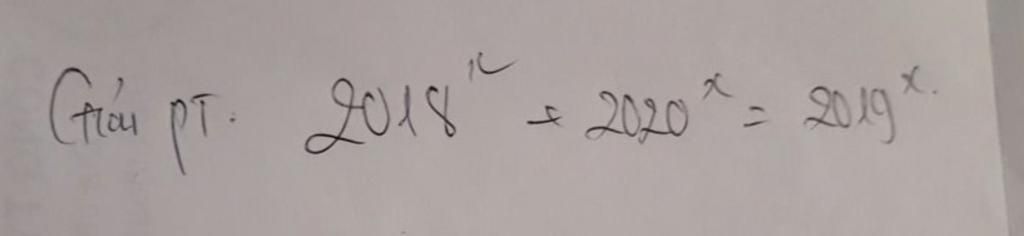 Giải PT. 2018^x + 2020^x = 2019^x.